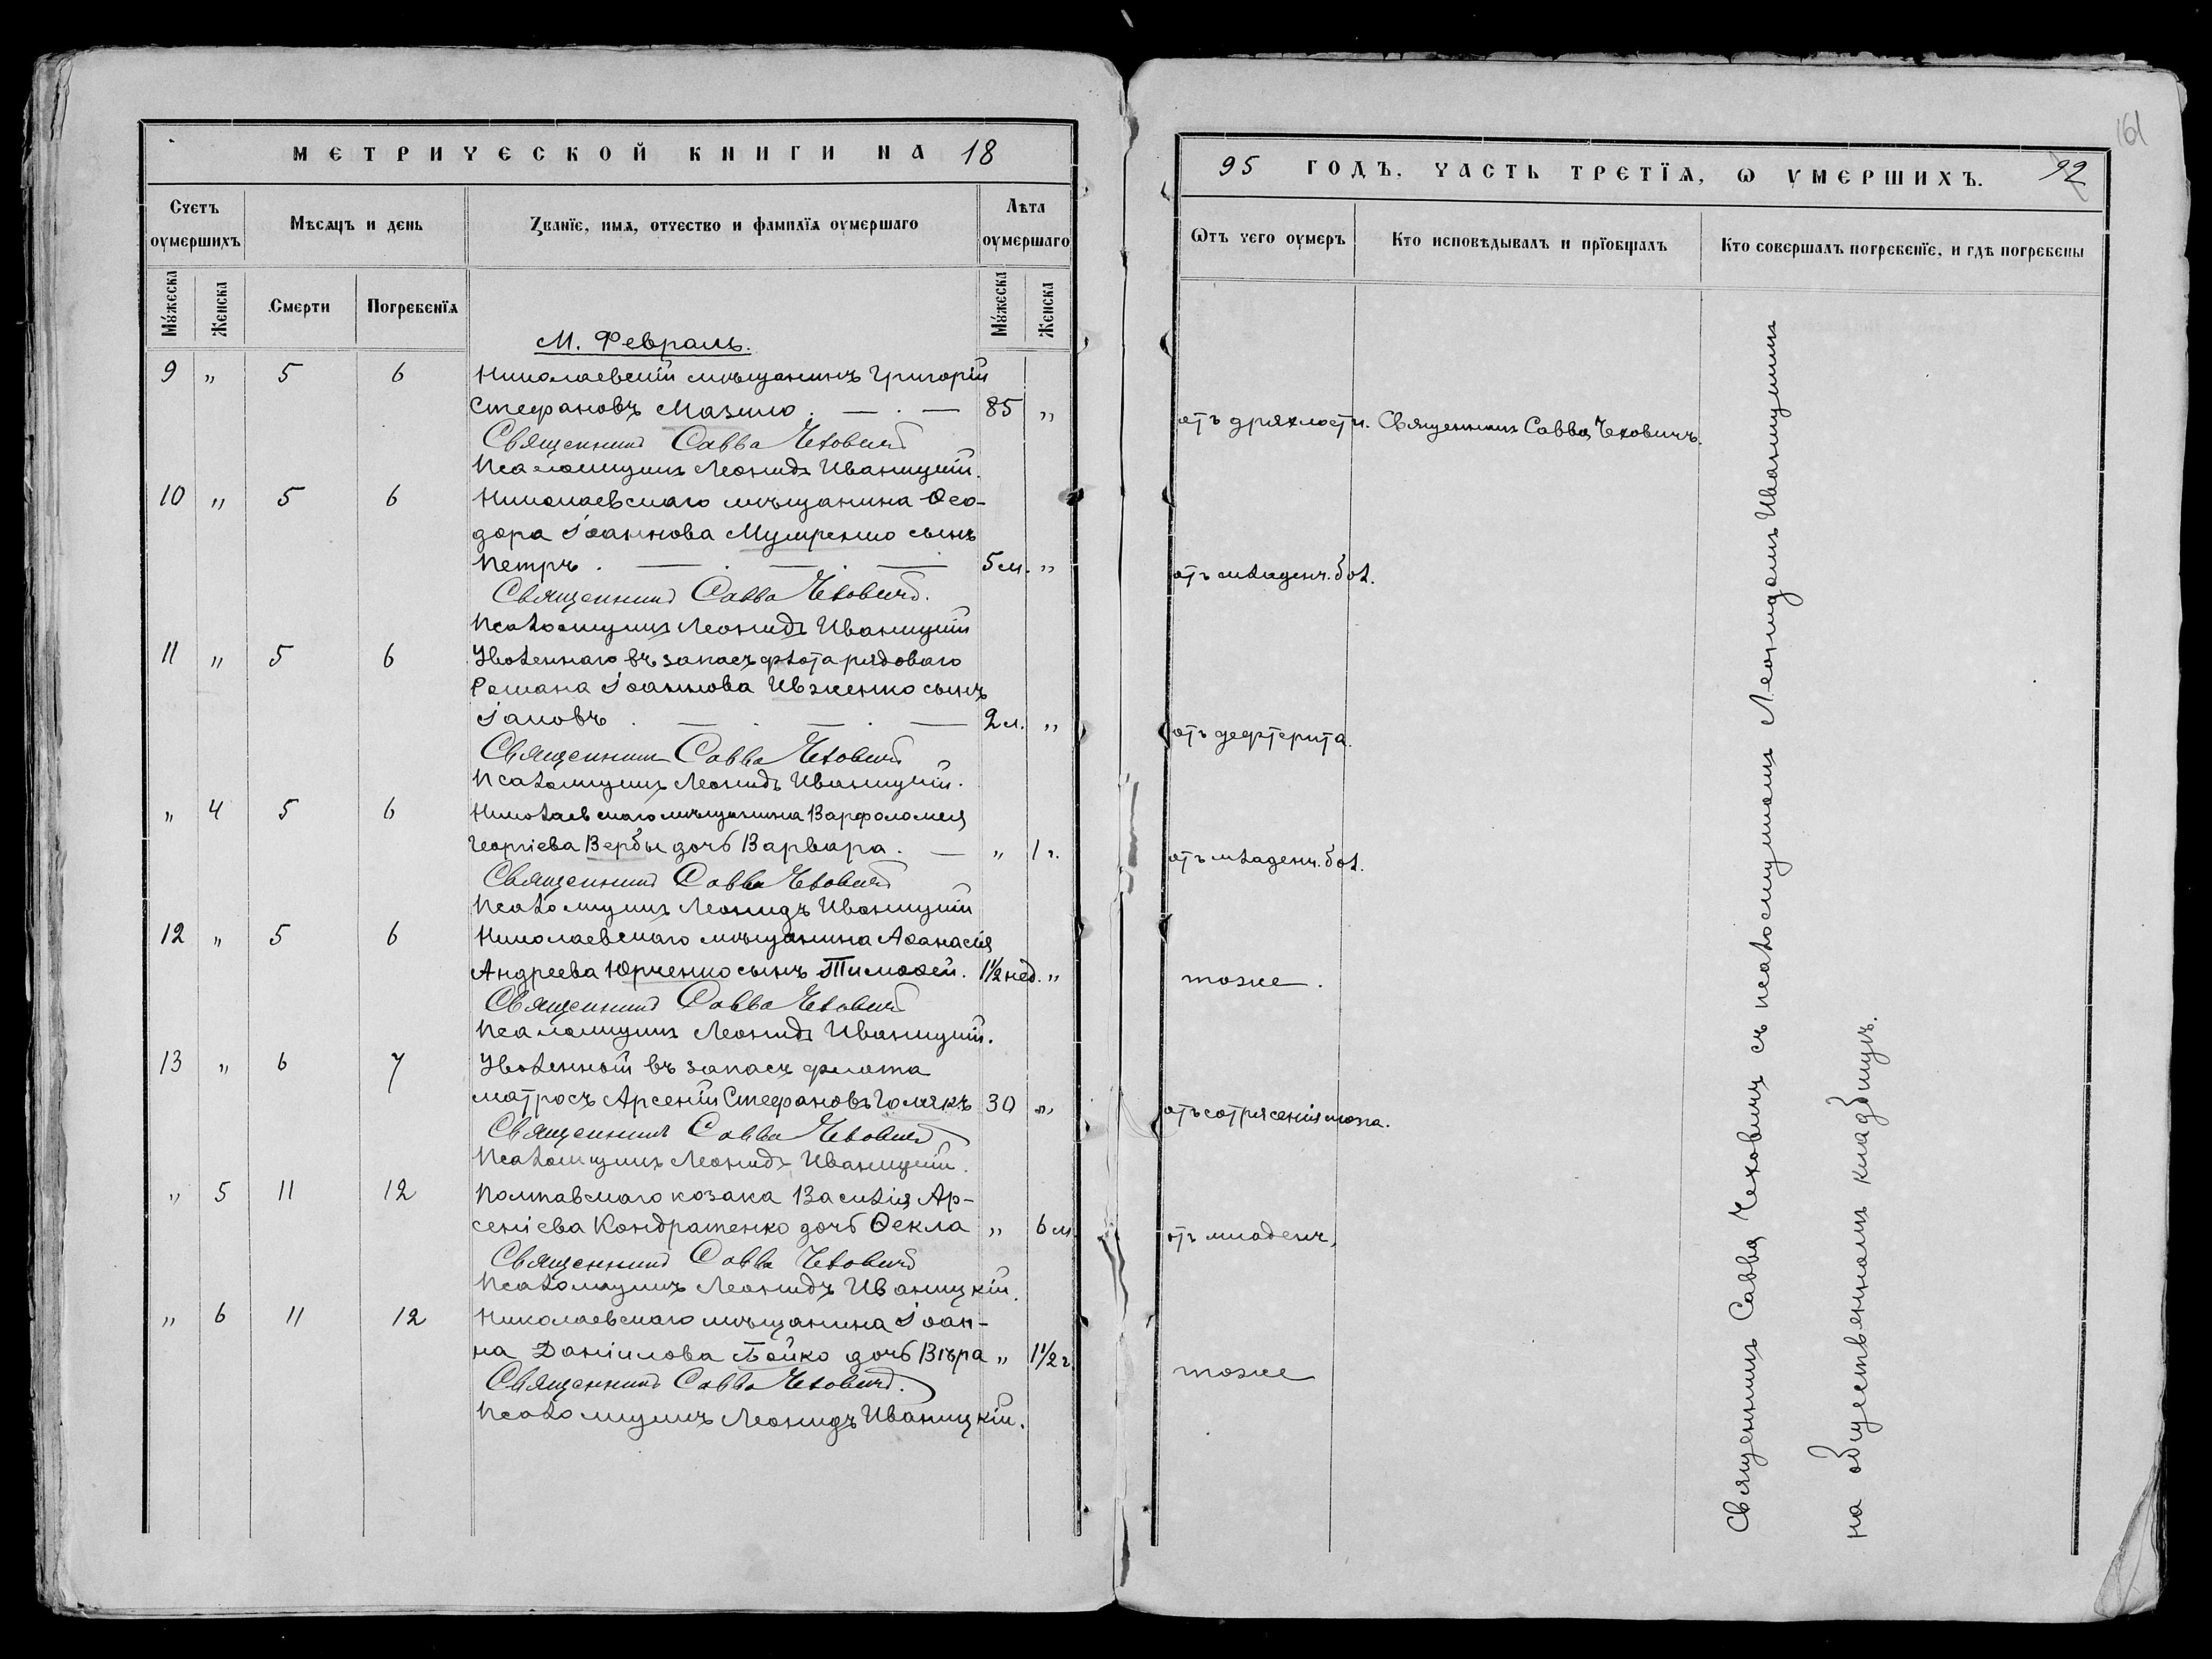 МЕТРИЧЕСКОЙ КНИГИ НА 18
Счетъ оумершихъ
Мѣсяцъ и день
Званїе, имя, отчество и фамилїя оумершаго
Лѣта оумершаго
Мужеска
Женска
Смерти
Погребенїя
Мужеска
Женска
М. Февраль.
9 " 5 6 Николаевскій мѣщанинъ Григорій
Стефановъ Мазило. — . — 85 "
Священникъ Савва Чеховичъ
Псаломщикъ Леонидъ Иваницкій.
10 " 5 6 Николаевскаго мѣщанина Ѳео-
дора Іоаннова сынъ
Петръ . — . — . — 5 м. "
Священникъ Савва Чеховичъ.
Псаломщикъ Леонидъ Иваницкій
11 " 5 6 Уволеннаго въ запасъ флота рядоваго
Романа Іоаннова Ивженко сынъ
Іаковъ . — . — . — 2 м. "
Священникъ Савва Чеховичъ
Псаломщикъ Леонидъ Иваницкій.
" 4 5 6 Николаевскаго мѣщанина Варфоломея
Георгіева Вербы дочь Варвара. — " 1 г.
Священникъ Савва Чеховичъ
Псаломщикъ Леонидъ Иваницкій
12 " 5 6 Николаевскаго мѣщанина Аѳанасія
Андреева Юрченко сынъ Тимоѳей. 1½ нед. "
Священникъ Савва Чеховичъ
Псаломщикъ Леонидъ Иваницкій.
13 " 6 7 Уволенный въ запасъ флота
матросъ Арсеній Стефановъ Голякъ 30 "
Священникъ Савва Чеховичъ
Псаломщикъ Леонидъ Иваницкій.
" 5 11 12 Полтавскаго козака Василія Ар-
сеніева Кондратенко дочь Ѳекла " 6 м.
Священникъ Савва Чеховичъ
Псаломщикъ Леонидъ Иваницкій.
" 6 11 12 Николаевскаго мѣщанина Іоан-
на Даніилова Бойко дочь Вѣра " 1½ г.
Священникъ Савва Чеховичъ.
Псаломщикъ Леонидъ Иваницкій.
161
95 ГОДЪ, ЧАСТЬ ТРЕТЇЯ, Ѡ УМЕРШИХЪ. 92
Ѡтъ чего оумеръ
Кто исповѣдывалъ и прїобщалъ
Кто совершалъ погребенїе, и гдѣ погребены
отъ дряхлости. Священникъ Савва Чеховичъ.
отъ младенч. бол.
отъ дефтерита.
отъ младенч. бол.
тоже.
отъ сотрясенія мозга.
отъ младенч.
тоже
Священникъ Савва Чеховичъ съ псаломщикомъ Леонидомъ Иваницкимъ
на общественномъ кладбищѣ.